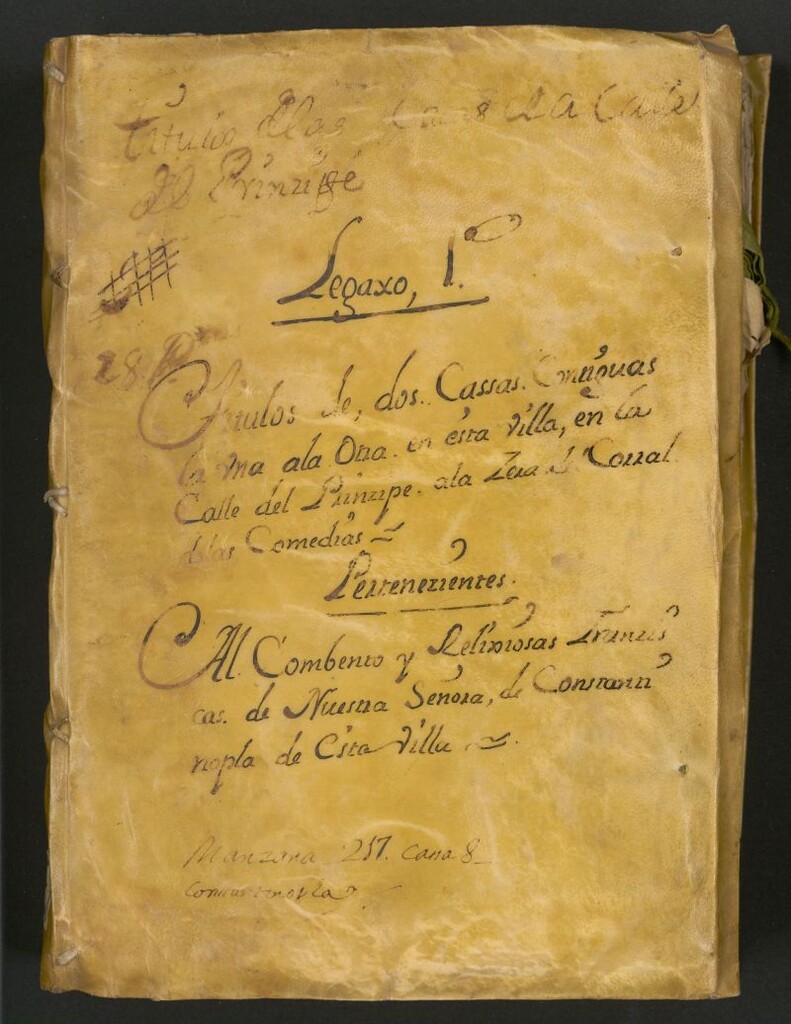 Titulos de las Casas de la Calle
del Prinzipe
Legaxo, 1º.
28. P
Titulos de, dos. Cassas. Contiguas
la vna ala Otra. en esta Villa, en la
Calle del Prinzipe. ala Zera del Corral
delas Comedias ~
Pertenezientes.
Al Combento y Relixiosas Franzis
cas. de Nuestra Señora, de Constanti
nopla de Esta Villa ~.
Manzana 217. Casa 8
Constantinopla